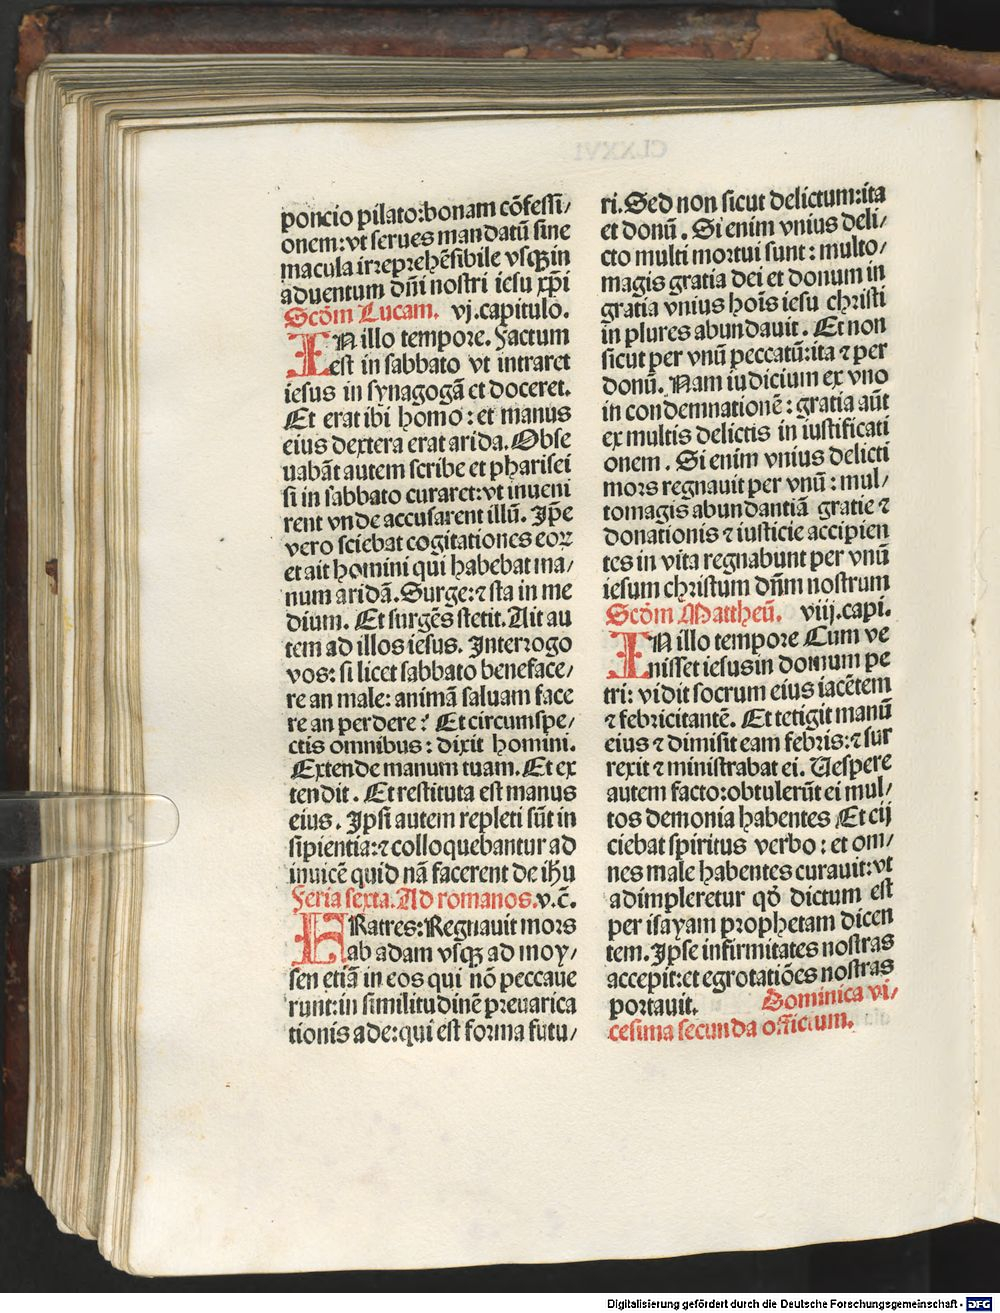 poncio pilato:bonam cōfessi/
onem:vt serues mandatū sine
macula irreprehēsibile vsqꝫ in
aduentum dn̄i nostri iesu xp̄i
Scd̄m Lucam. vj.capitulo.
IN illo tempore. Factum
est in sabbato vt intraret
iesus in synagogā et doceret.
Et erat ibi homo: et manus
eius dextera erat arida. Obse
uabāt autem scribe et pharisei
si in sabbato curaret:vt inueni
rent vnde accusarent illū. Ip̄e
vero sciebat cogitationes eoꝝ
et ait homini qui habebat ma/
num aridā. Surge:⁊ sta in me
dium. Et surgēs stetit. Ait au
tem ad illos iesus. Interrogo
vos: si licet sabbato beneface/
re an male: animā saluam face
re an perdere? Et circumspe/
ctis omnibus: dixit homini.
Extende manum tuam. Et ex
tendit. Et restituta est manus
eius. Ipsi autem repleti sūt in
sipientia:⁊ colloquebantur ad
inuicē quid nā facerent de ih̄u
Feria sexta. Ad romanos.v.c̄.
FRatres: Regnauit mors
ab adam vsqꝫ ad moy/
sen etiā in eos qui nō peccaue
runt:in similitudinē preuarica
tionis ade:qui est forma futu/
ri. Sed non sicut delictum:ita
et donū. Si enim vnius deli/
cto multi mortui sunt: multo/
magis gratia dei et donum in
gratia vnius hoīs iesu christi
in plures abundauit. Et non
sicut per vnū peccatū:ita ⁊ per
donū. Nam iudicium ex vno
in condemnationē: gratia aūt
ex multis delictis in iustificati
onem. Si enim vnius delicti
mors regnauit per vnū: mul/
tomagis abundantiā gratie ⁊
donationis ⁊ iusticie accipien
tes in vita regnabunt per vnū
iesum christum dn̄m nostrum
Scd̄m Mattheū. viij.capi.
IN illo tempore Cum ve
nisset iesus in domum pe
tri: vidit socrum eius iacētem
⁊ febricitantē. Et tetigit manū
eius ⁊ dimisit eam febris:⁊ sur
rexit ⁊ ministrabat ei. Uespere
autem facto:obtulerūt ei mul/
tos demonia habentes Et eij
ciebat spiritus verbo: et om/
nes male habentes curauit:vt
adimpleretur qd̄ dictum est
per isayam prophetam dicen
tem. Ipse infirmitates nostras
accepit:et egrotatiōes nostras
portauit. Dominica vi/
cesima secunda officium.
Digitalisierung gefördert durch die Deutsche Forschungsgemeinschaft - DFG